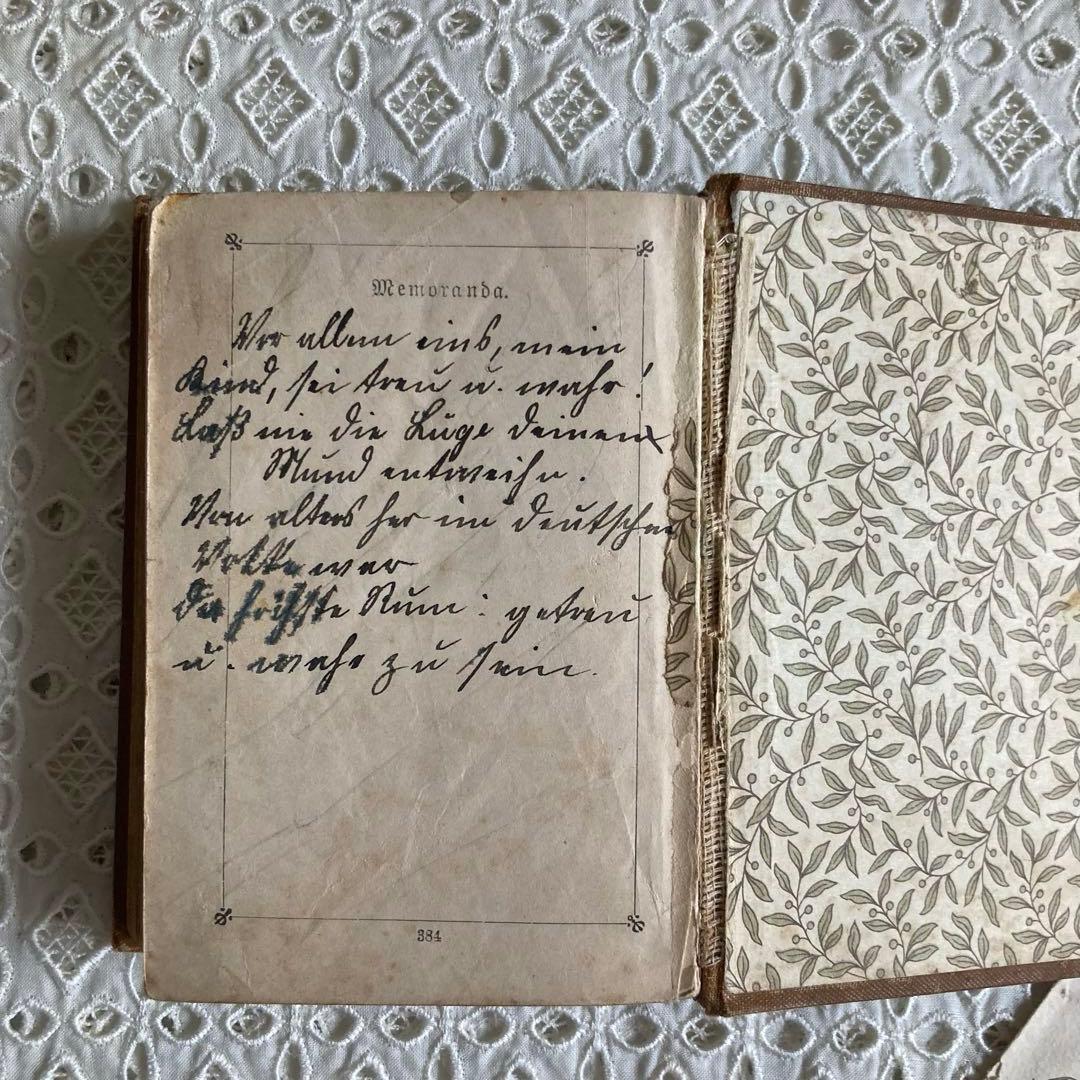 Memoranda.
Vor allem eins, mein
Kind, sei treu u. wahr!
Laß nie die Lüge deinen
Mund entweihn.
Von alters her im deutschen
Volke war
Der höchste Rum: getreu
u. wahr zu sein.
384